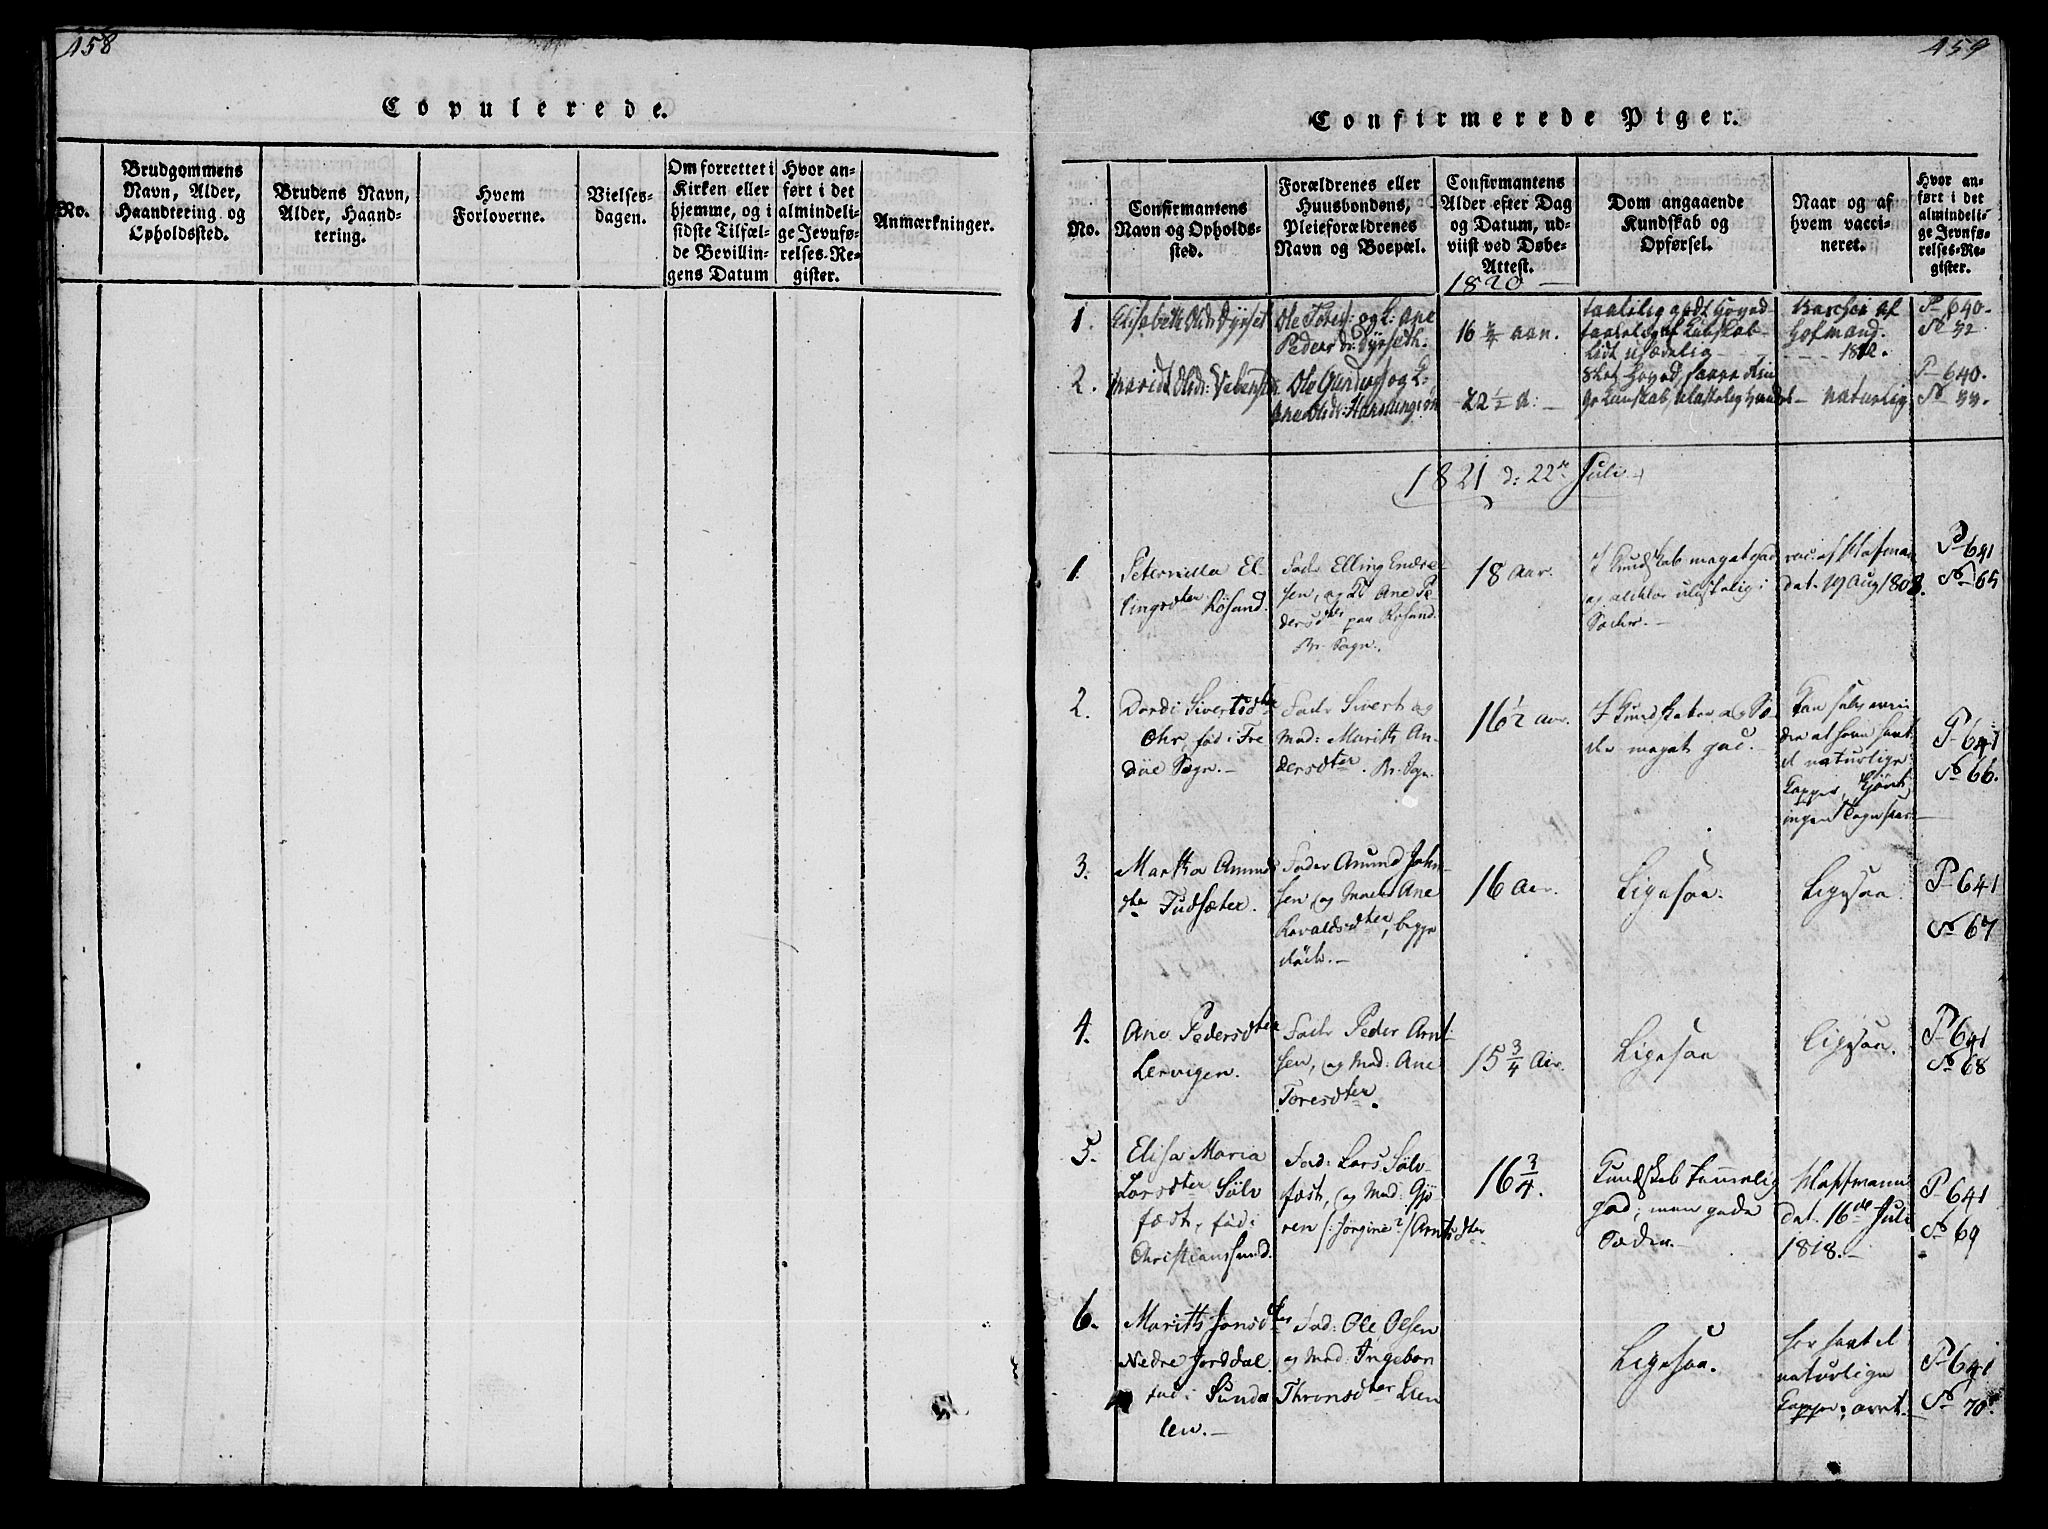 458
Copulerede.
No.
Brudgommens
Navn, Alder,
Haandtering og
Opholdssted.
Brudens Navn,
Alder, Haand-
tering.
Hvem
Forloverne.
Vielses-
dagen.
Om forrettet i
Kirken eller
hjemme, og i
sidste Tilfæl-
de Bevillin-
gens Datum
Hvor an-
ført i det
almindeli-
ge Jevnfø-
relses-Re-
gister.
Anmærkninger.
459
Confirmerede Piger.
No.
Confirmantens
Navn og Opholds-
sted.
Forældrenes eller
Huusbondens,
Pleieforældrenes
Navn og Boepæl.
Confirmantens
Alder efter Dag
og Datum, ud-
viist ved Døbe-
Attest.
Dom angaaende
Kundskab og
Opførsel.
Naar og af
hvem vacci-
neret.
Hvor an-
ført i det
almindeli-
ge Jevnfø-
relses-Re-
gister.
1820
1.
Elisabeth Olsdr Dyrset
Ole
Peders dr: Dyrseth.
16 aar.
Hofmand.
1812.
P 640.
No 32
2.
Ole Gunders og
Ane Olsdr:
22 1/2 d:
naturlig
P 640.
No 33.
1821 d: 22de Juli.
1.
Peternilla El-
lingsdter Røsand.
Fader Elling Endre-
sen, og M Ane Pe-
dersdter paa Røsand.
Br. Sogn.
18 Aar.
I Kundskab meget god
og
Sæder.
vac: af Hofman
dat. 19 Aug 1808.
P 641
No 65
2.
Dordi Sivertsdter
Ohr, fød i Fre
döe Sogn.
Fader Sivert og
Mod: Marith An-
dersdter. Br. Sogn.
16 1/2 Aar.
I Kundskaber og Sæ-
der meget god.
at have havt
de naturlige
Kopper,
ingen Tegn
P 641
No 66.
3.
Martha Amunds
dter Fudsæter.
Fader Amund John-
sen, og Moder Ane
Havaldsdter, begge
døde.
16 Aar.
Ligesaa.
Ligesaa.
P 641
No 67
4.
Ane Pedersdter
Lervigen.
Fader Peder Arnt-
sen, og Mod: Ane
Toresdter.
15 3/4 Aar.
Ligesaa
Ligesaa.
P 641
No 68
5.
Elisa Maria
Larsdter Sölv
fæst, fød i
Christianssund.
Fad: Lars Sölv-
fæst, og Mod: Gjö-
ren /: Jorgine? / Arntsdter
16 3/4.
Kundskab temmelig
god; men gode
Sæder.
Hoffmann
dat. 16de Juli
1818.
P 641
No 69
6.
Marith Jonsdter
Nedre Jorddal
fød i Sunda
len.
Fad: Ole Olsen
og Mod: Ingebor
Thronsdter Lien
Ligesaa.
har havt de
naturlige
Kopper; arret.
P 641
No 70.